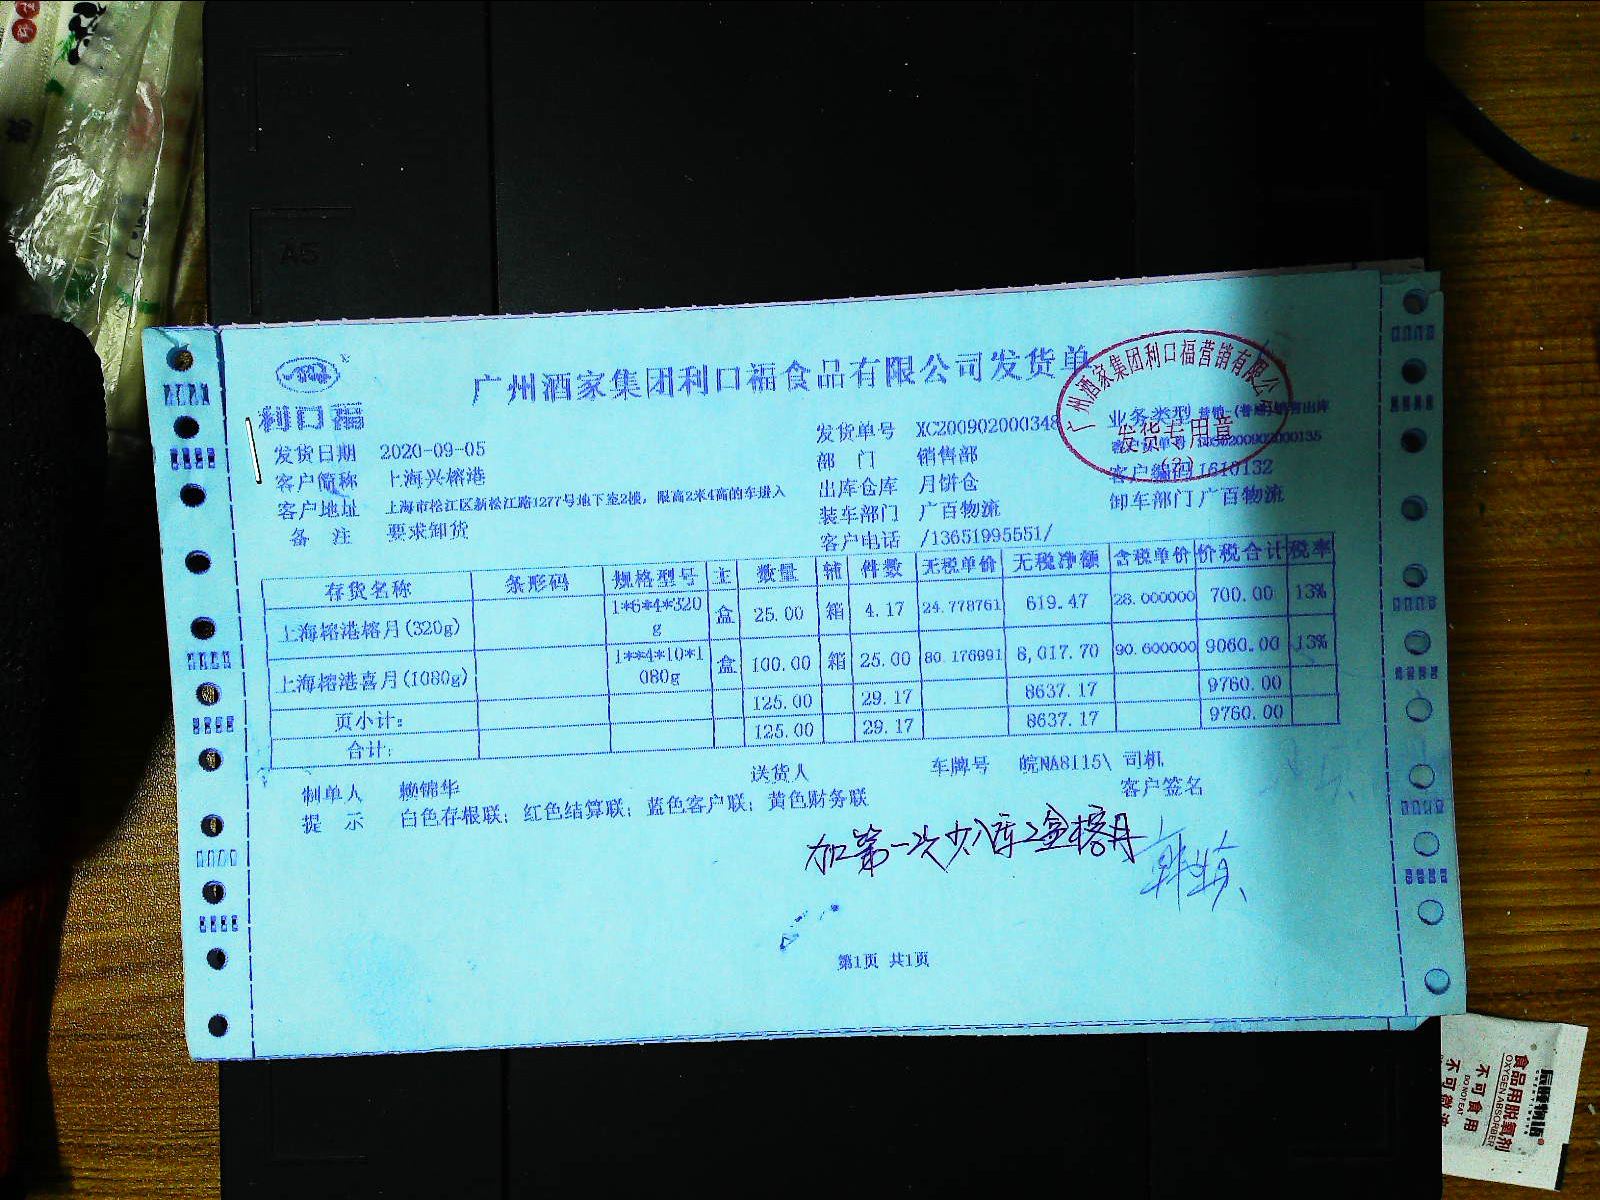 利口福
广州酒家集团利口福食品有限公司发货单
广州酒家集团利口福营销有限公司
发货专用章
(2)
发货日期 2020-09-05
发货单号 XC200902000348
业务类型
客户简称 上海兴榕港
部 门 销售部
客户地址 上海市松江区新松江路1277号地下室2楼，限高2米4高的车进入
出库仓库 月饼仓
客户编码 1610132
备 注 要求卸货
装车部门 广百物流
卸车部门 广百物流
客户电话 /13651995551/
存货名称 条形码 规格型号 主 数量 辅 件数 无税单价 无税净额 含税单价 价税合计 税率
上海榕港榕月(320g) 1*6*4*320g 盒 25.00 箱 4.17 24.778761 619.47 28.000000 700.00 13%
上海榕港喜月(1080g) 1**4*10*1080g 盒 100.00 箱 25.00 80.176991 8,017.70 90.600000 9060.00 13%
页小计: 125.00 29.17 8637.17 9760.00
合计: 125.00 29.17 8637.17 9760.00
制单人 赖锦华 送货人 车牌号 皖NA8115\ 司机
提 示 白色存根联；红色结算联；蓝色客户联；黄色财务联
客户签名
加第一次少入库2盒榕月
第1页 共1页
A5
食品用脱氧剂
OXYGEN ABSORBER
不可食用
DO NOT EAT